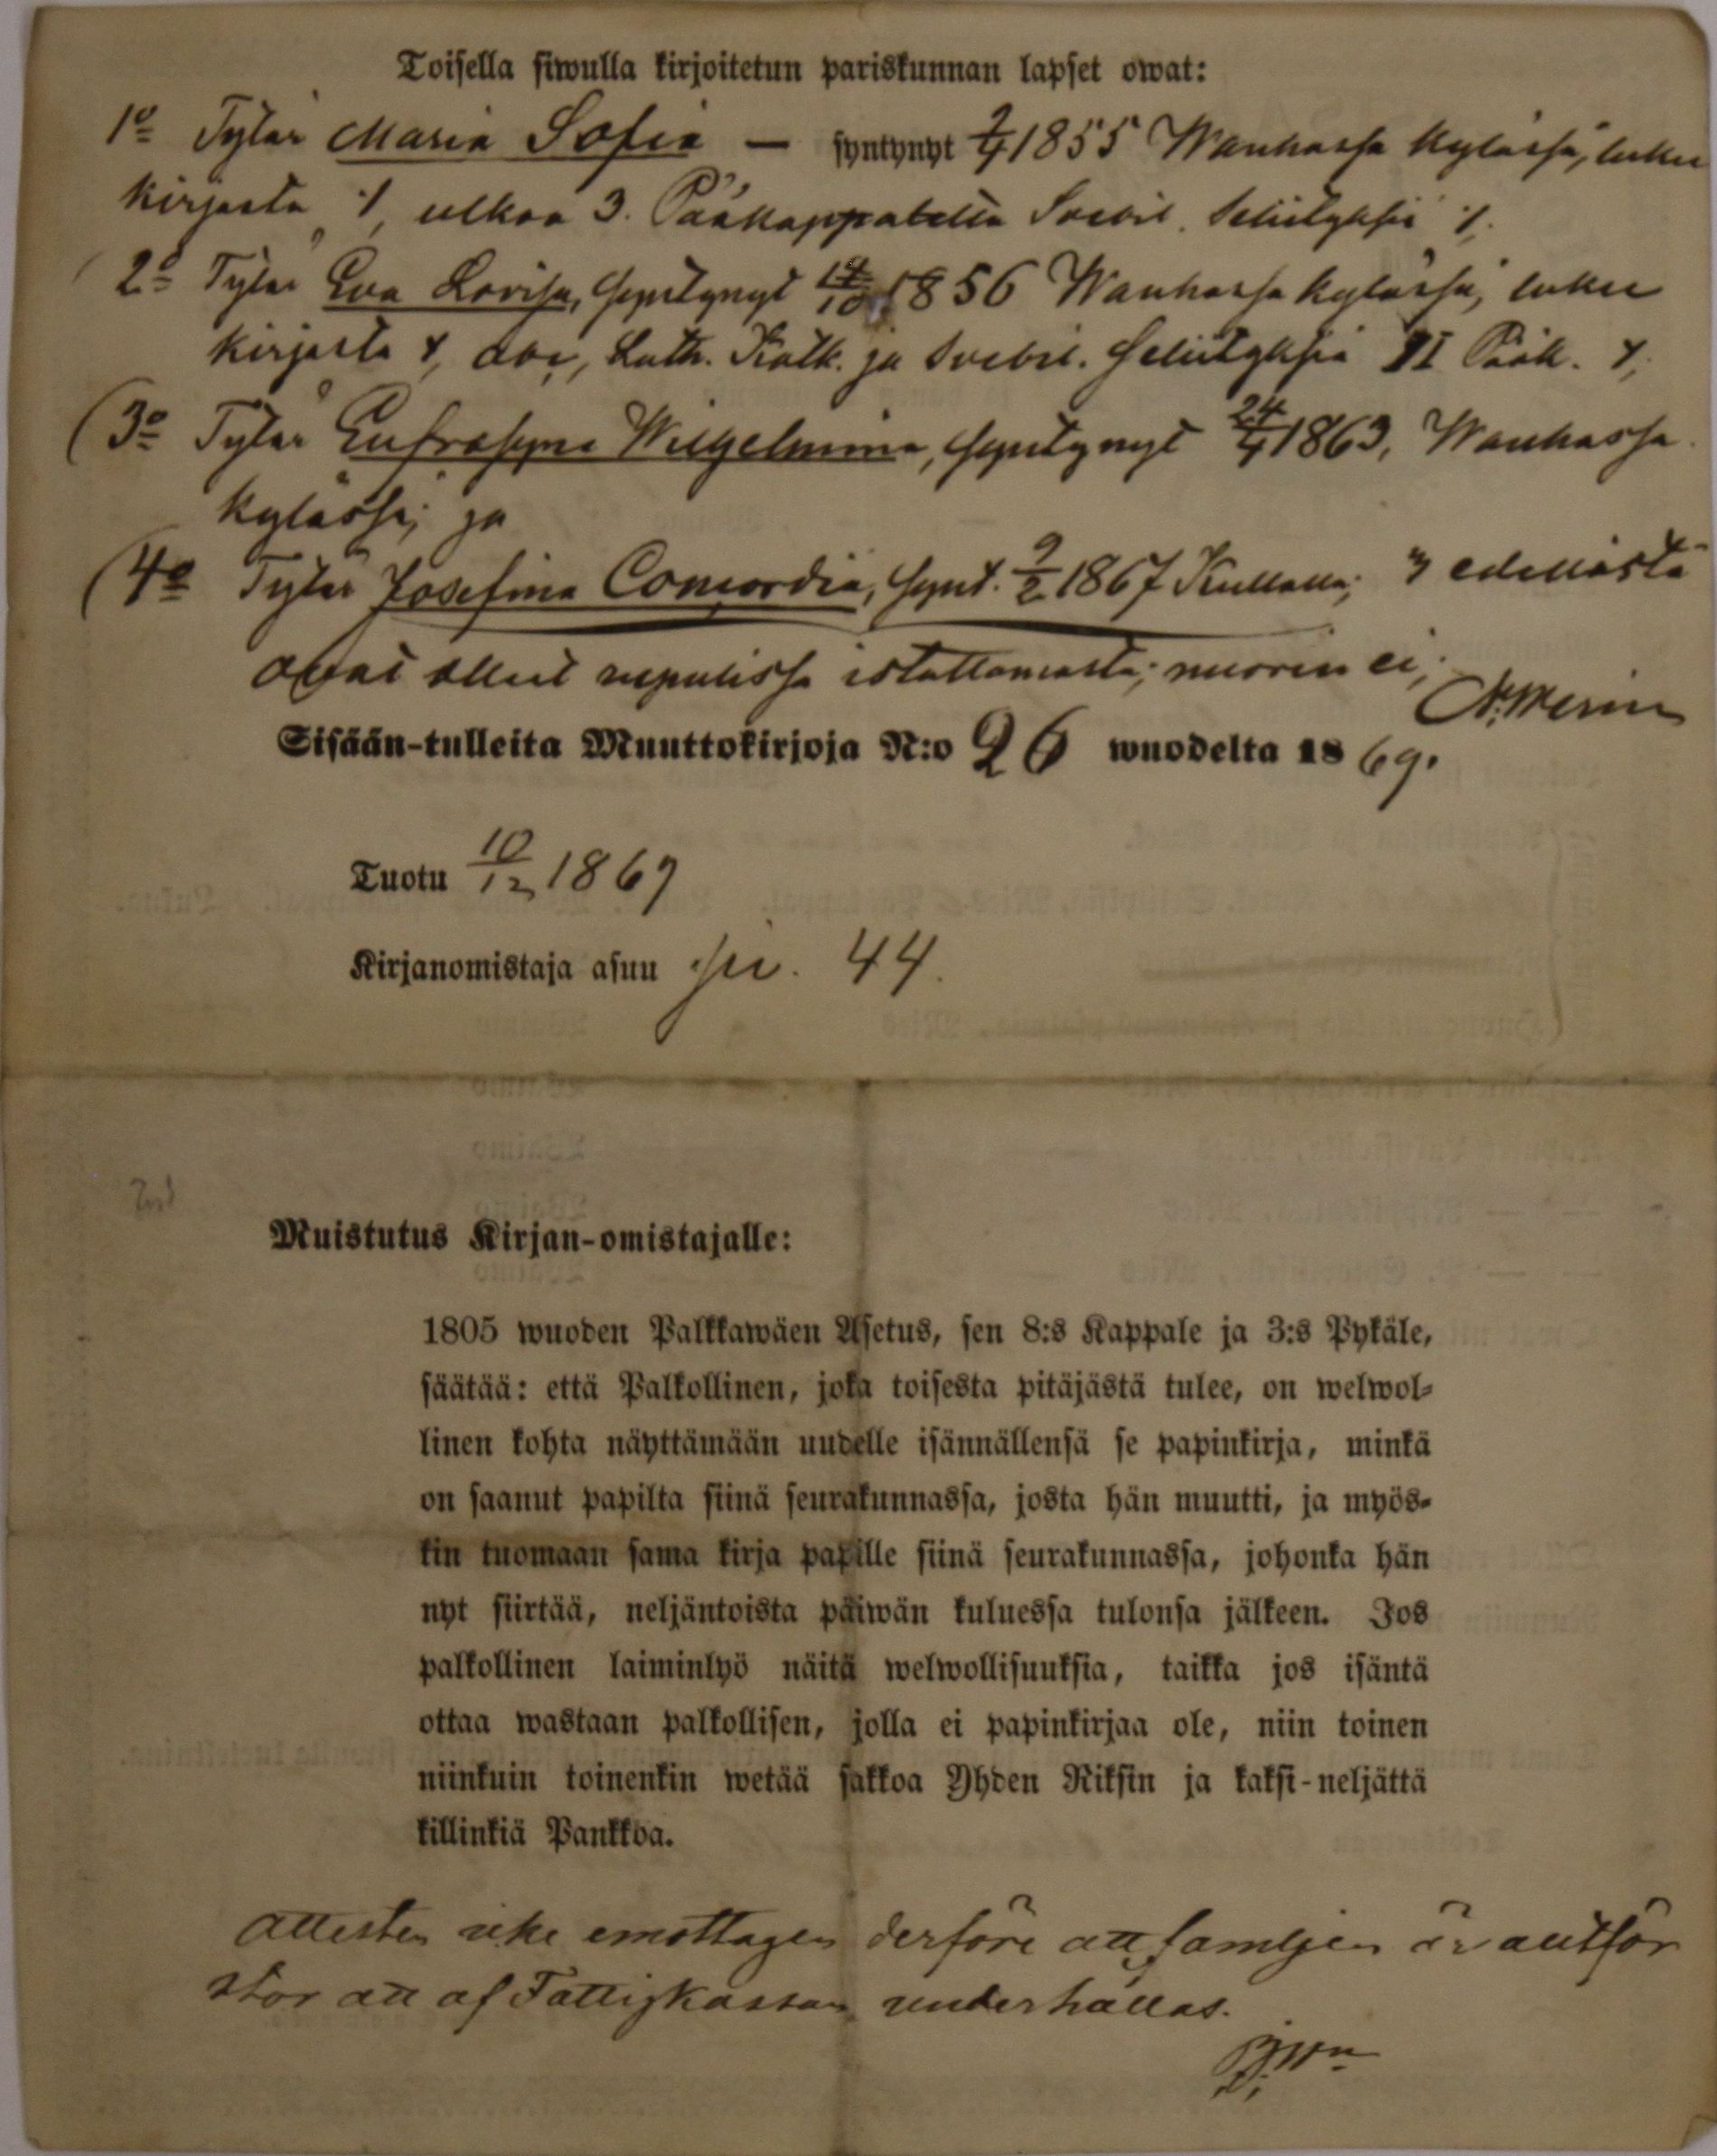 Toisella siwulla kirjoitetun pariskunnan lapset owat:
1º Tytär Maria Sofia — syntynyt 2/4 1855 Wanhassa kylässä, lukee
kirjasta ulkoa 3. Pääkappaletta Svebil. Selitykssiä
2º Tytär Eva Lovisa, syntynyt 14/10 1856 Wanhassa kylässä, lukee
kirjasta Luth. Katk. ja Svebil. Selitykssiä II Pääk.
3º Tytär Eufrosyne Wilhelmina, syntynyt 24/4 1863, Wanhassa
kylässä; ja
4º Tytär Josefina Concordia, synt. 9/2 1867 Kullalla; 3 edellistä
ovat olleet rupulissa istuttamista; nuorin ei;
Sisään-tulleita Muuttokirjoja N:o 26 wuodelta 1869.
Tuotu 10/12 1869
Kirjanomistaja asuu siv. 44.
Muistutus Kirjan-omistajalle:
1805 wuoden Palkkawäen Asetus, sen 8:s Kappale ja 3:s Pykäle,
säätää: että Palkollinen, joka toisesta pitäjästä tulee, on welwol-
linen kohta näyttämään uudelle isännällensä se papinkirja, minkä
on saanut papilta siinä seurakunnassa, josta hän muutti, ja myös-
kin tuomaan sama kirja papille siinä seurakunnassa, johonka hän
nyt siirtää, neljäntoista päiwän kuluessa tulonsa jälkeen. Jos
palkollinen laiminlyö näitä welwollisuuksia, taikka jos isäntä
ottaa wastaan palkollisen, jolla ei papinkirjaa ole, niin toinen
niinkuin toinenkin wetää sakkoa Yhden Riksin ja kaksi-neljättä
killinkiä Pankkoa.
Attesten icke emottagen derföre att familjen är alltför
stor att af Fattigkassan underhållas.